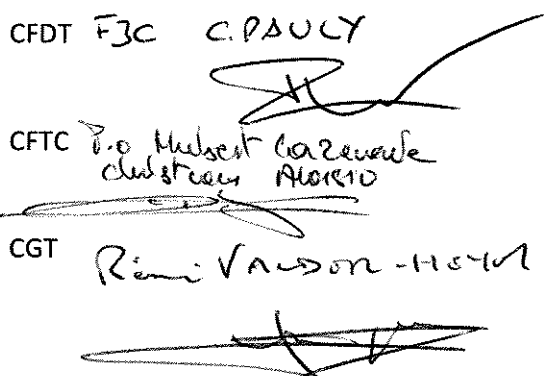 CFDT F3C C. PAULY
CFTC P.o Hubert Cazenave
Christian Aloisio
CGT Rémi